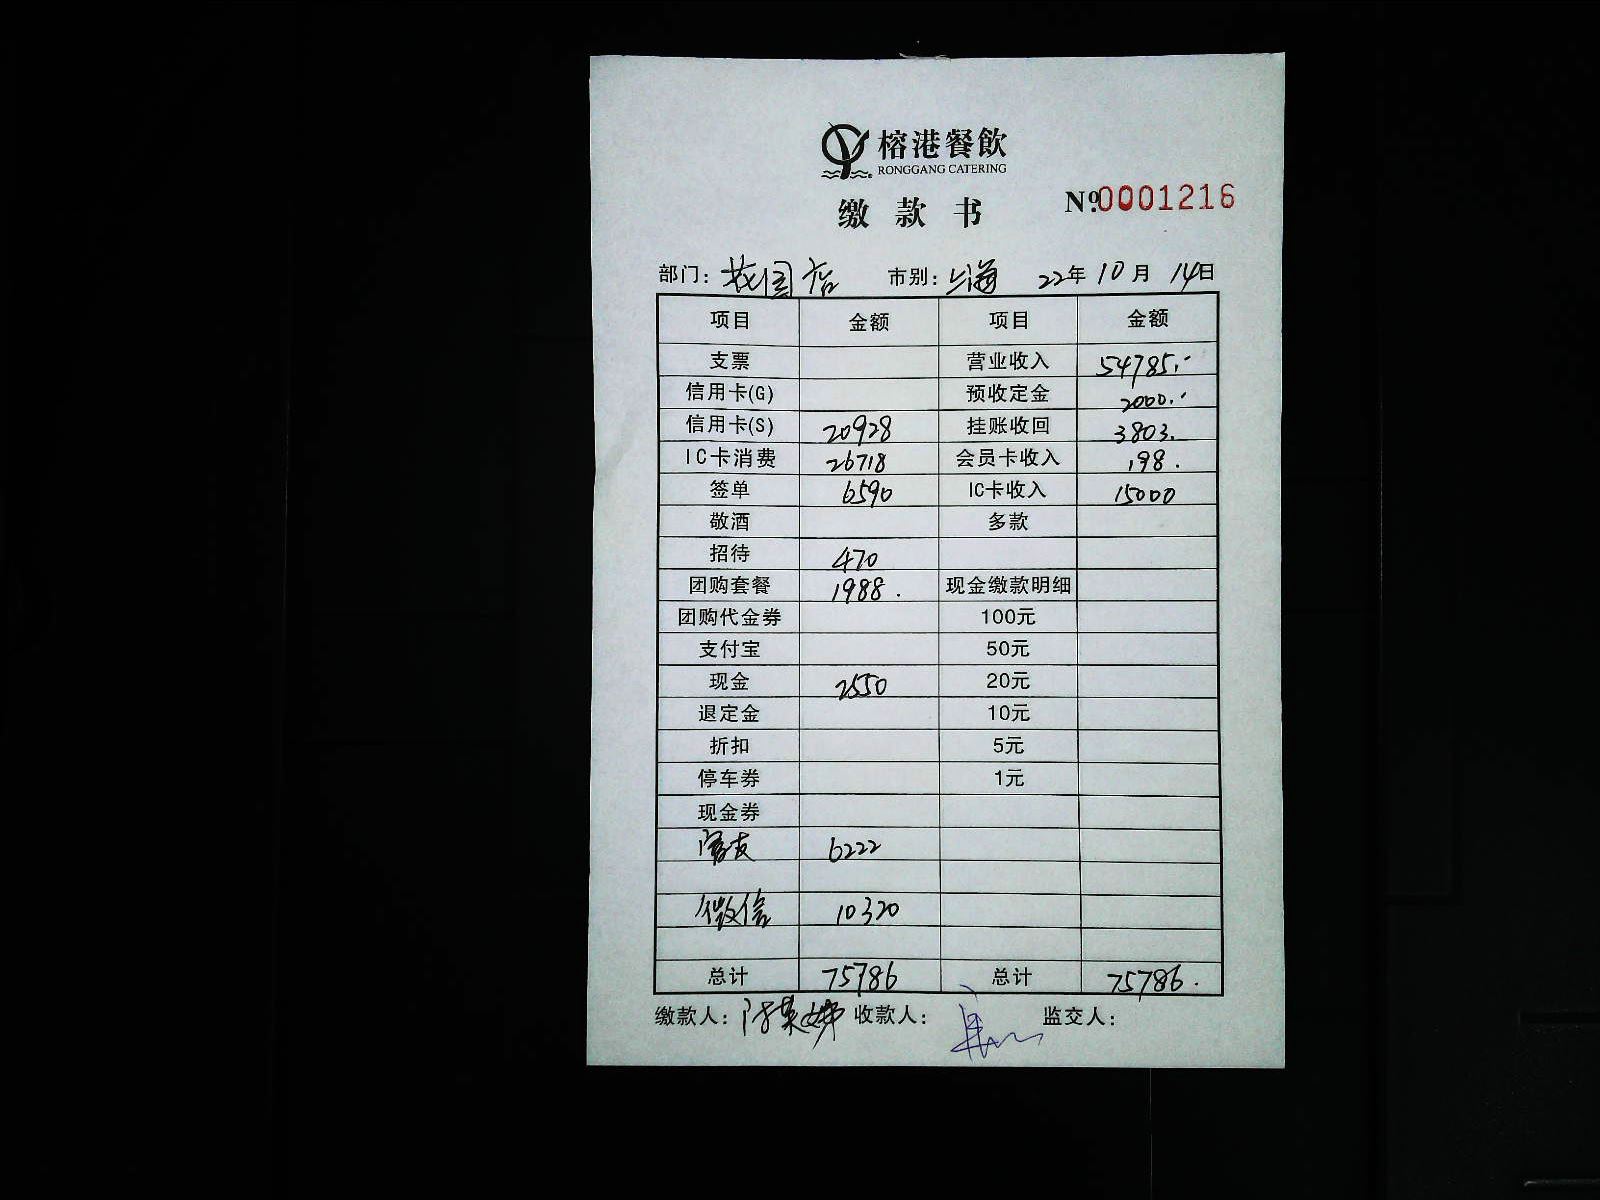 榕港餐飲
RONGGANG CATERING
缴款书 №0001216
部门: 花园店 市别: 上海 22年10月14日
项目 金额 项目 金额
支票 营业收入 54785.-
信用卡(G) 预收定金 2000.-
信用卡(S) 20928 挂账收回 3803.
IC卡消费 26718 会员卡收入 198.
签单 6590 IC卡收入 15000
敬酒 多款
招待 470
团购套餐 1988. 现金缴款明细
团购代金券 100元
支付宝 50元
现金 2550 20元
退定金 10元
折扣 5元
停车券 1元
现金券
6222
微信 10320
总计 75786 总计 75786.
缴款人: 收款人: 监交人: